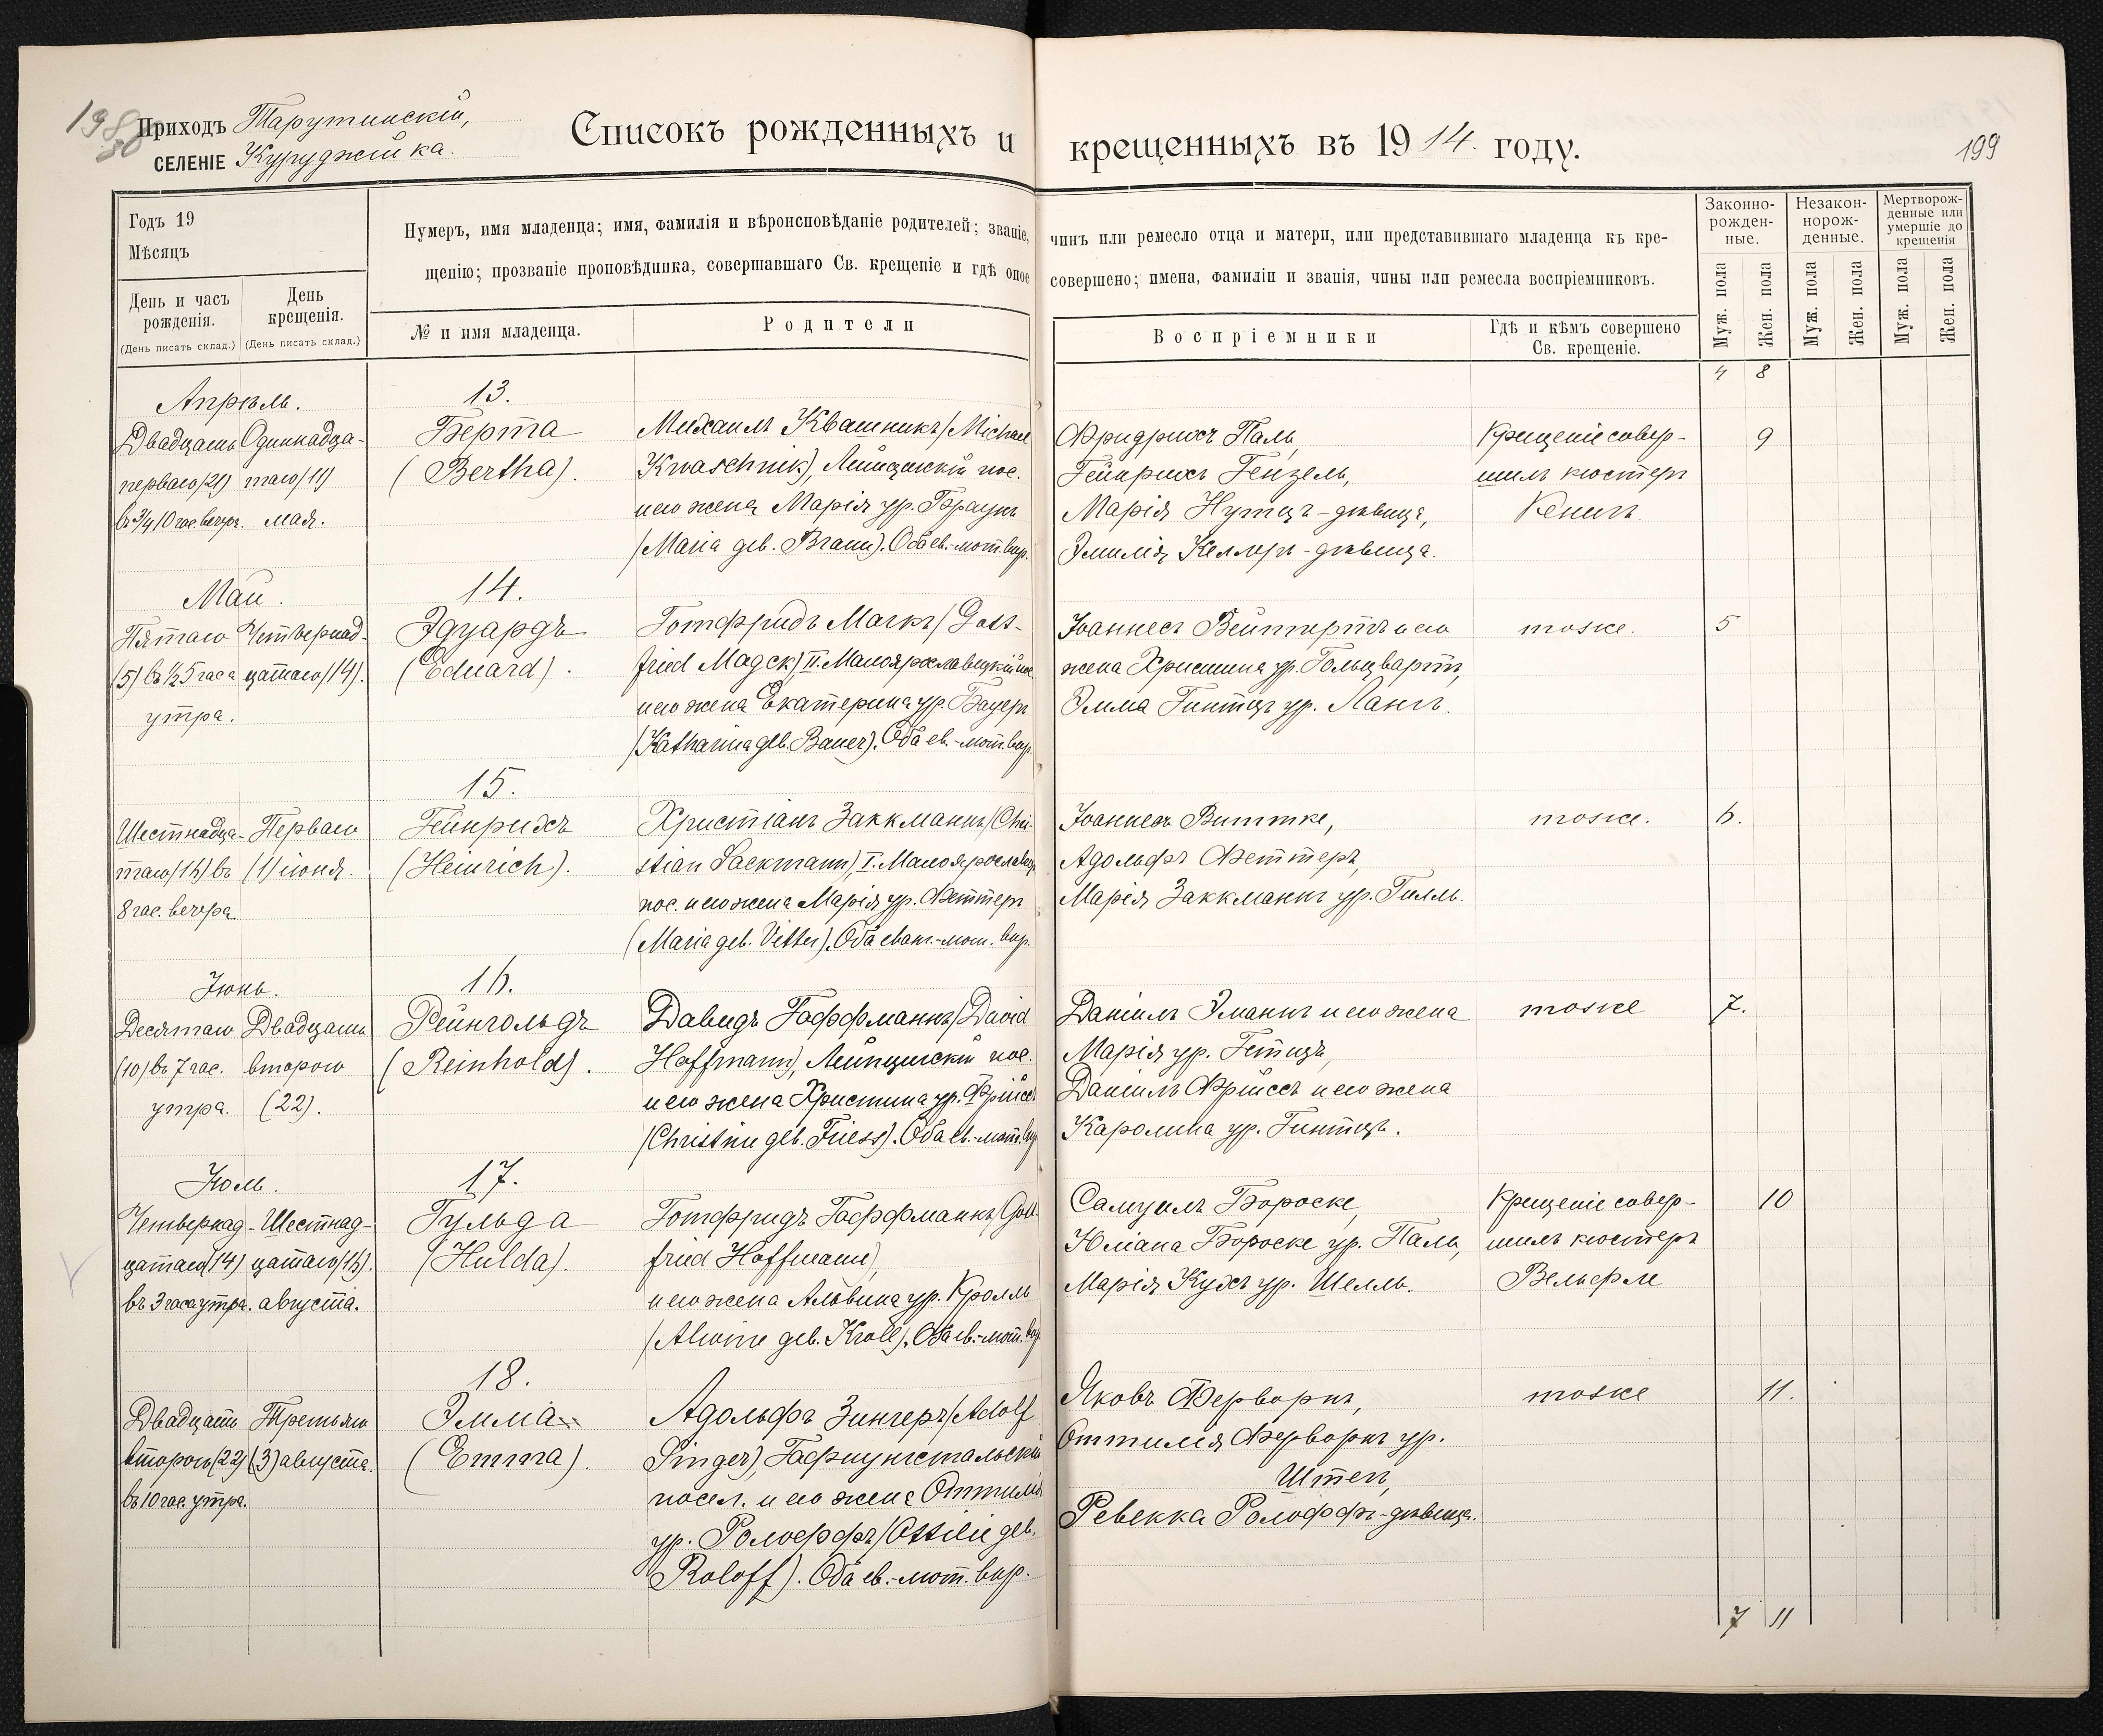 198
Приходъ Тарутинскій,
СЕЛЕНІЕ Куруджійка.
Списокъ рожденныхъ и крещенныхъ въ 1914. году.
199
Годъ 19
Мѣсяцъ
День и часъ рожденія.
(День писать склад.)
День крещенія.
(День писать склад.)
Нумеръ, имя младенца; имя, фамилія и вѣроисповѣданіе родителей; званіе, чинъ или ремесло отца и матери, или представившаго младенца къ кре-
щенію; прозваніе проповѣдника, совершавшаго Св. крещеніе и гдѣ оное совершено; имена, фамиліи и званія, чины или ремесла воспріемниковъ.
№ и имя младенца.
Родители
Воспріемники
Гдѣ и кѣмъ совершено
Св. крещеніе.
Законно-
рожден-
ные.
Незакон-
норож-
денные.
Мертворож-
денные или
умершіе до
крещенія
Муж. пола
Жен. пола
Муж. пола
Жен. пола
Муж. пола
Жен. пола
4 8
Апрѣль.
Двадцать
перваго (21)
въ 3/4 10 час. вечера.
Одиннадца-
таго (11)
мая.
13.
Берта
(Bertha).
Михаилъ Квашникъ (Michael
Kwaschnik), Лейпцигскій пос.
и его жена Марія ур. Браунъ
(Maria geb. Braun). Оба ев.-лют. вѣр.
Фридрихъ Паль,
Гейнрихъ Гензель,
Марія Нутцъ-дѣвица,
Эмилія Келлеръ-дѣвица.
Крещеніе совер-
шилъ кюстеръ
Кенигъ
9
Май.
Пятаго
(5) въ 1/2 5 часа
утра.
Четвернад-
цатаго (14).
14.
Эдуардъ
(Eduard).
Готфридъ Маскъ (Gott-
fried Maqck), II. Малоярославецкій пос.
и его жена Екатерина ур. Бауеръ
(Katharina geb. Bauer). Оба ев.-лют. вѣр.
Іоаннесъ Вейппертъ и его
жена Христина ур. Гольцвартъ,
Эмма Гинтцъ ур. Лангъ.
тоже.
5
15.
Шестнадца-
таго (16) въ
8 час. вечера.
Перваго
(1) іюня.
Гейнрихъ
(Heinrich).
Христіанъ Заккманнъ (Chri-
stian Sackmann), I. Малоярославец.
пос. и его жена Марія ур. Феттеръ
(Maria geb. Vetter). Оба еванг.-лют. вѣр.
Іоаннесъ Виттке,
Адольфъ Феттеръ,
Марія Заккманнъ ур. Гилль.
тоже.
6.
Іюнь.
Десятаго
(10) въ 7 час.
утра.
Двадцать
второго
(22).
16.
Рейнгольдъ
(Reinhold).
Давидъ Гоффманнъ (David
Hoffmann), Лейпцигскій пос.
и его жена Христина ур. Фрійссъ
(Christine geb. Friess). Оба ев.-лют. вѣр.
Даніилъ Эманнъ и его жена
Марія ур. Гетцъ,
Даніилъ Фрійссъ и его жена
Каролина ур. Гинтцъ.
тоже
7.
Іюль.
Четвернад-
цатаго (14)
въ 3 часа утра.
Шестнад-
цатаго (16).
августа.
17.
Гульда
(Hulda).
Готфридъ Гоффманнъ (Gott-
fried Hoffmann),
и его жена Альвина ур. Кролль
(Alwine geb. Kroll). Оба ев.-лют. вѣр.
Самуилъ Бороске,
Юліана Бороске ур. Паль,
Марія Кухъ ур. Шелль.
Крещеніе совер-
шилъ кюстеръ
Вельфле
10
18.
Двадцать
второго (22)
въ 10 час. утра.
Третьяго
(3) августа.
Эмма
(Emma).
Адольфъ Зингеръ (Adolf
Singer), Гофнунгстальскій
посел. и его жена Оттилія
ур. Ролоффъ (Ottilie geb.
Roloff). Оба ев.-лют. вѣр.
Яковъ Ферворнъ,
Оттилія Ферворнъ ур.
Штегъ,
Ревекка Ролоффъ-дѣвица.
тоже
11.
7 11